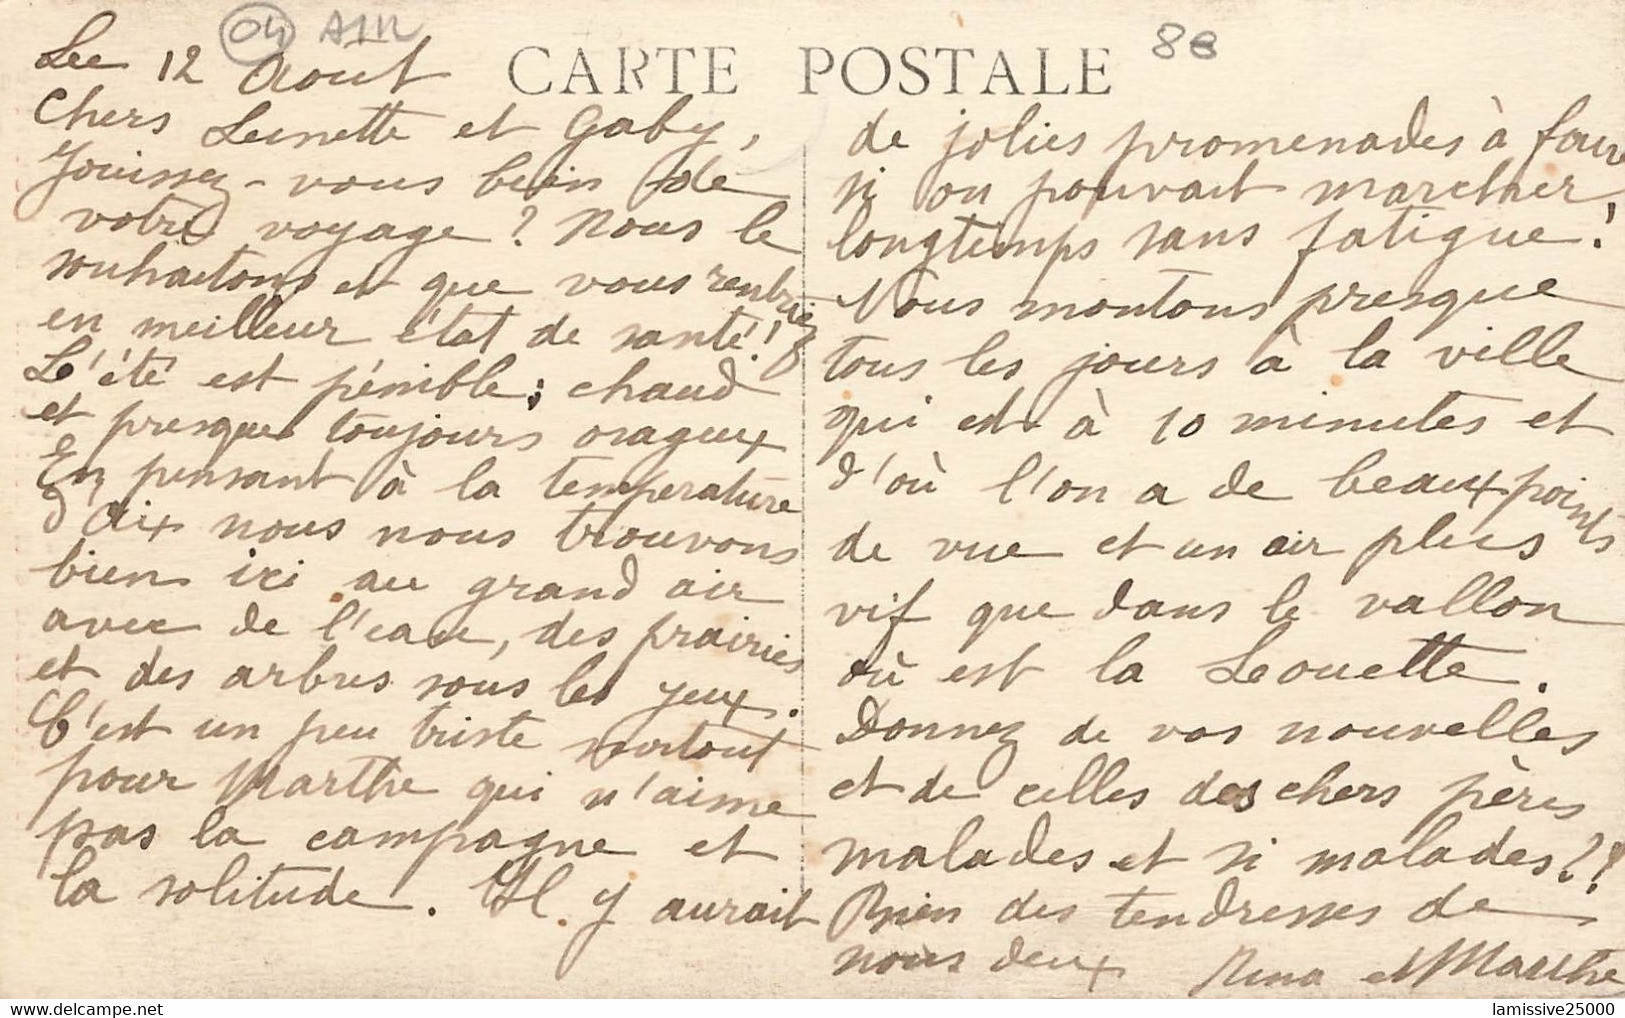 04 AIR
8€
CARTE POSTALE
Le 12 Août
Chers Lunette et Gaby,
Jouissez-vous bien de
votre voyage? Nous le
souhaitons et que vous rentriez
en meilleur état de santé!
L'été est pénible; chaud
et presque toujours orageux
En pensant à la température
d'Aix nous nous trouvons
bien ici au grand air
avec de l'eau, des prairies
et des arbres sous les yeux.
C'est un peu triste surtout
pour Marthe qui n'aime
pas la campagne et
la solitude. Il y aurait
de jolies promenades à faire
si on pouvait marcher
longtemps sans fatigue!
Nous montons presque
tous les jours à la ville
qui est à 10 minutes et
d'où l'on a de beaux points
de vue et un air plus
vif que dans le vallon
où est la Leouette.
Donnez de vos nouvelles
et de celles des chers pères
malades et si malades??
Bien des tendresses de
nous deux Nina et Marthe
lamissive25000